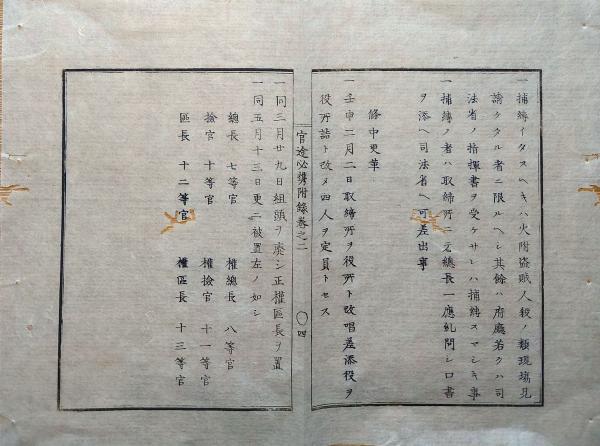 一捕縛イタスヘキハ火附盗賊人殺ノ類現場見
請クタル者ニ限ルヘシ其餘ハ府廳若クハ司
法省ノ指揮書ヲ受ケサレハ捕縛スマシキ事
一捕縛ノ者ハ取締所ニ之總長一應糺問シ口書
ヲ添ヘ司法省ヘ可差出事
條中更革
一壬申二月二日取締所ヲ役所ト改唱差添役ヲ
役所詰ト改メ四人ヲ定員トセス
官途必携附錄卷之二
〇四
一同三月廿九日組頭ヲ廢シ正權區長ヲ置
一同五月十三日更ニ被置左ノ如シ
總長 七等官 權總長 八等官
撿官 十等官 權撿官 十一等官
區長 十二等官 權區長 十三等官